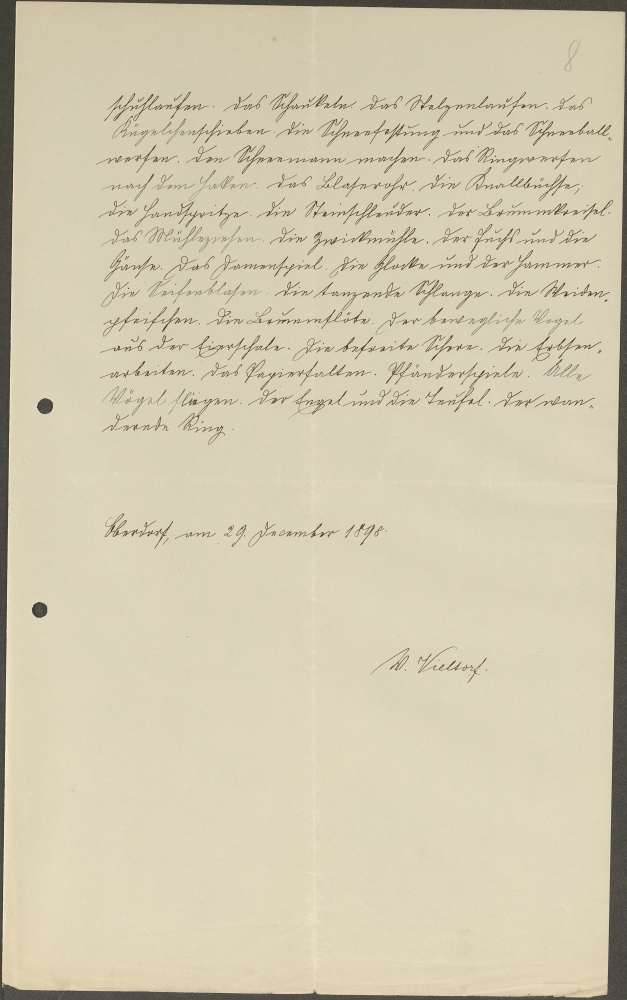 8
schuhlaufen. Das Schaukeln. Das Stelzenlaufen. Das
Kügelchenschieben. Die Schneefestung und das Schneeball-
werfen. Den Schneemann machen. Das Ringwerfen
nach dem Haken. Das Blaserohr. Die Knallbüchse;
die Handspritze. Die Steinschleuder. Der Brummkreisel.
Das Mühleziehen. Die Zwickmühle. Der Fuchs und die
Gänse. Das Damenspiel. Die Glocke und der Hammer.
Die Seifenblasen. Die tanzende Schlange. Die Weiden-
pfeifchen. Die Brummflöte. Der bewegliche Vogel
aus der Eierschale. Die befreite Schere. Die Erbsen-
arbeiten. Das Papierfalten. Pfänderspiele. Alle
Vögel fliegen. Der Engel und die Teufel. Der wan-
dernde Ring.
Oberdorf, am 29. Dezember 1898.
V. Vieltorf.